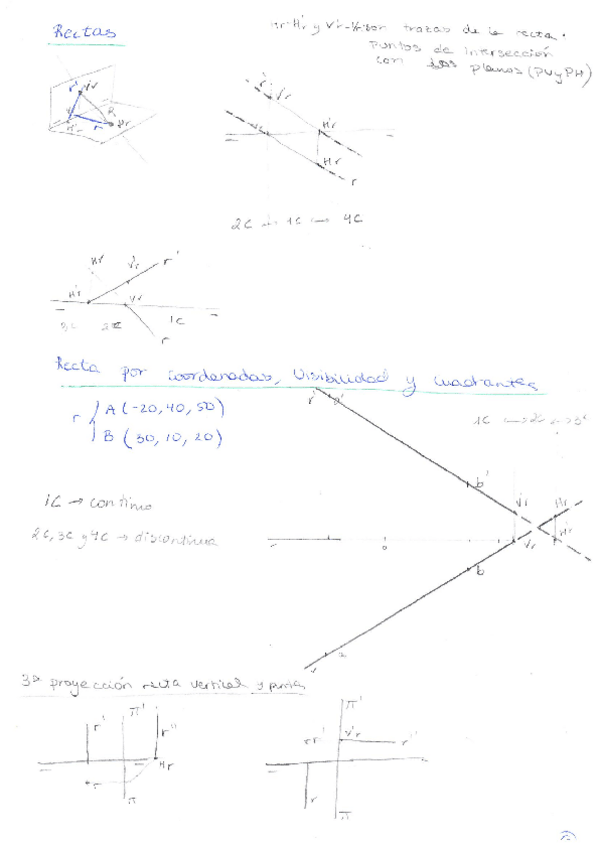 Rectas
Hr-H'r y Vr-V'r son trazas de la recta.
Puntos de intersección
con los planos (PV y PH)
r' V'r
R
r Hr
V'r
H'r
Vr
Hr
r
2C 1C 4C
Hr V'r r'
H'r Vr
3C 2C 1C
r
Recta por coordenadas, Visibilidad y cuadrantes
r A (-20, 40, 50)
B (30, 10, 20)
r' a'
1C 2C 3C
b'
1C → continuo
2C, 3C y 4C → discontinua
V'r Hr
0 Vr H'r
b
r a
3ª proyección recta vertical y punta
r' π' r''
Hr
r
π
π'
r' V'r r''
r
π